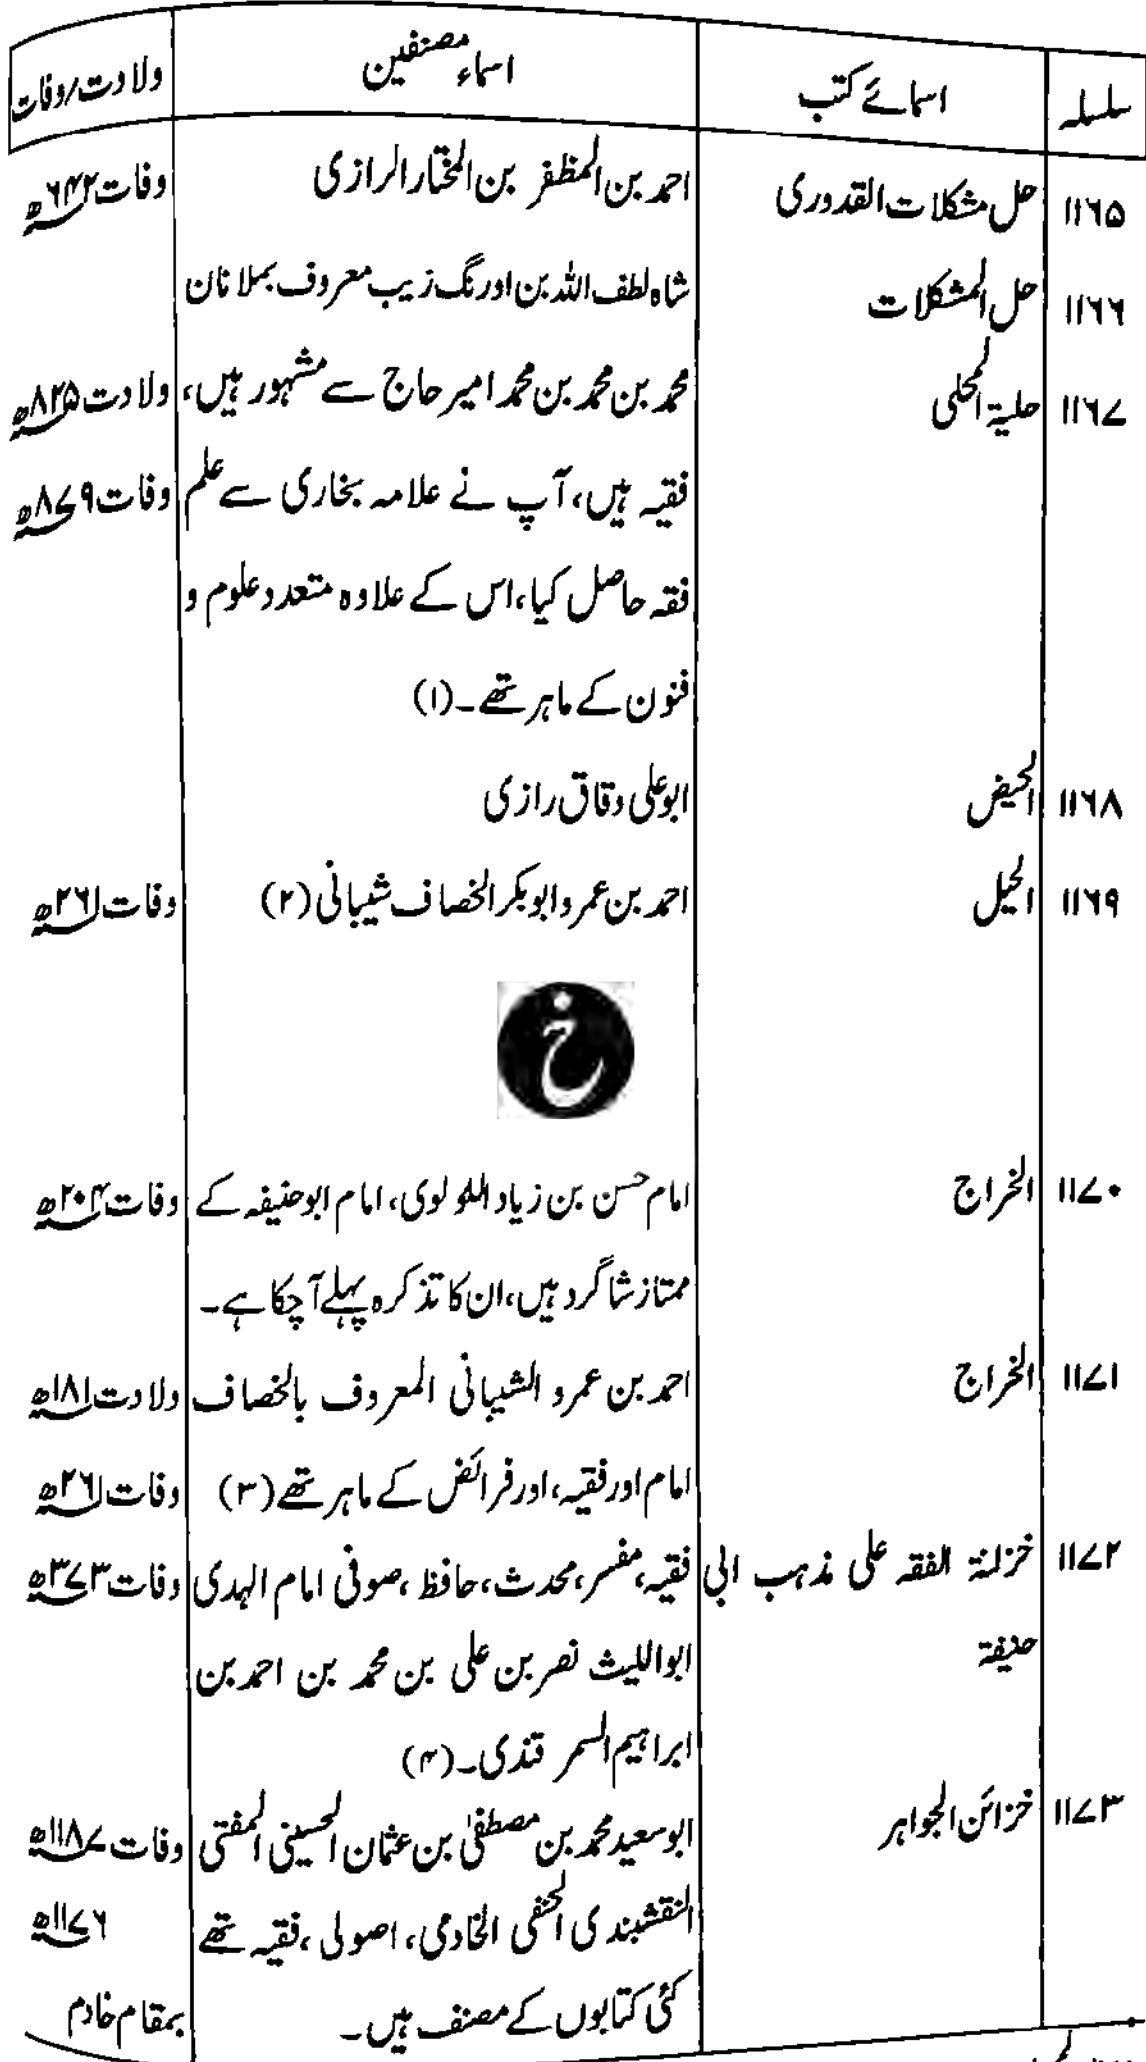 سلسلہ اسمائے کتب اسماء مصنفین ولادت/وفات
۱۱۶۵ حل مشکلات القدوری احمد بن المظفر بن المختار الرازی وفات ۶۴۲ھ
۱۱۶۶ حل المشکلات شاہ لطف اللہ بن اورنگ زیب معروف بملا نان
۱۱۶۷ حلیۃ المحلی محمد بن محمد بن محمد امیر حاج سے مشہور ہیں، ولادت ۸۲۵ھ
فقیہ ہیں، آپ نے علامہ بخاری سے علم وفات ۸۷۹ھ
فقہ حاصل کیا، اس کے علاوہ متعدد علوم و
فنون کے ماہر تھے۔ (۱)
۱۱۶۸ الحیض ابوعلی دقاق رازی
۱۱۶۹ الحیل احمد بن عمر و ابوبکر الخصاف شیبانی (۲) وفات ۲۶۱ھ
خ
۱۱۷۰ الخراج امام حسن بن زیاد اللولوی، امام ابوحنیفہ کے وفات ۲۰۴ھ
ممتاز شاگرد ہیں، ان کا تذکرہ پہلے آچکا ہے۔
۱۱۷۱ الخراج احمد بن عمرو الشیبانی المعروف بالخصاف ولادت ۱۸۱ھ
امام اور فقیہ، اور فرائض کے ماہر تھے (۳) وفات ۲۶۱ھ
۱۱۷۲ خزانۃ الفقہ علی مذہب ابی فقیہ، مفسر، محدث، حافظ، صوفی امام الہدی وفات ۳۷۳ھ
حنیفۃ ابواللیث نصر بن علی بن محمد بن احمد بن
ابراہیم السمر قندی۔ (۴)
۱۱۷۳ خزائن الجواہر ابوسعید محمد بن مصطفیٰ بن عثمان الحسینی المفتی وفات ۱۱۸۷ھ
النقشبندی الحنفی الخادمی، اصولی، فقیہ تھے ۱۱۷۶ھ
کئی کتابوں کے مصنف ہیں۔ بمقام خادم